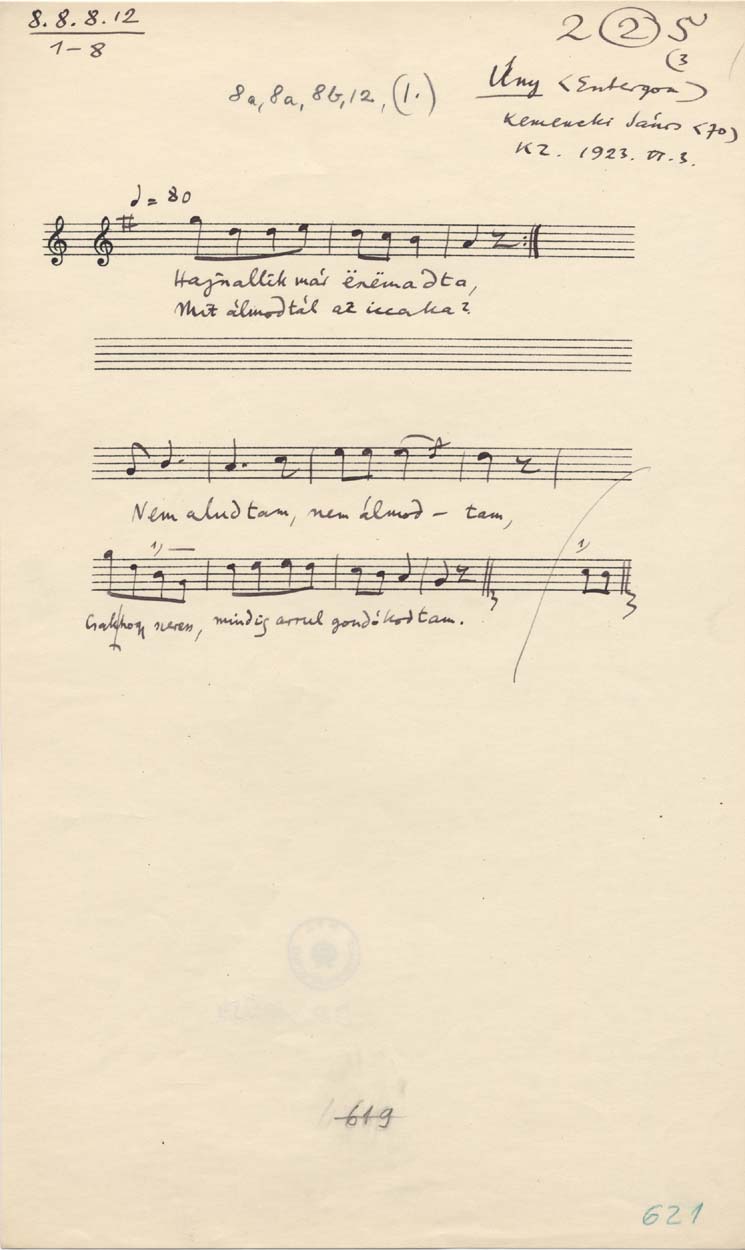 8. 8. 8. 12
1-8
2 (2) 5
(3
8a, 8a, 8b, 12, (1.)
Úny (Esztergom)
Kemencki János (70)
KZ. 1923. VI. 3.
♩ = 80
Hajnallik már ënëmadta,
Mit álmodtál az iccaka?
Nem aludtam, nem álmod - tam,
1)
1)
Csakhogy szeress, mindig arrul gondókodtam.
619
621